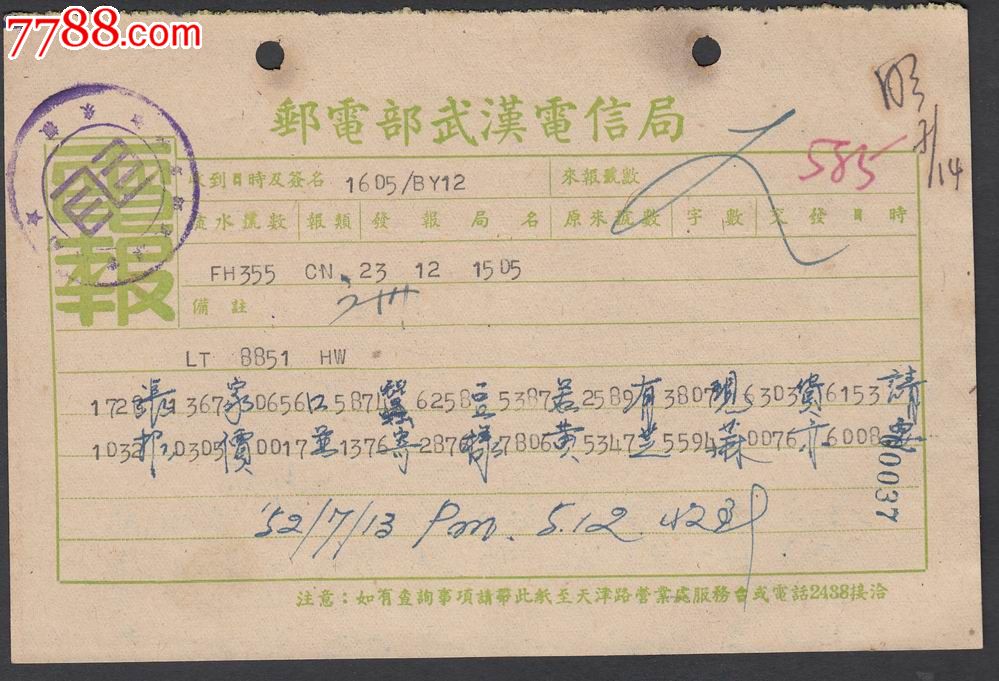 7788.com
郵電部武漢電信局
明
7/14
585
電報
收到日時及簽名 1605/BY12 來報號數
流水號數 報類 發報局名 原來號數 字數 交發日時
FH355 CN 23 12 1505
備註
LT 8851 HW
1728 張 1367 家 0656 口 5871 蠶 6258 豆 5387 若 2589 有 3807 現 6303 貨 6153 請
1032 0305 價 0017 並 1376 寄 2876 樣 7806 黃 5347 芝 5594 蔴 0076 亦 6008 要
00037
'52/7/13 Pm. 5.12
注意：如有查詢事項請帶此紙至天津路營業處服務台或電話2438接洽